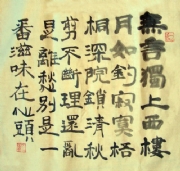 無言獨上西樓
月如鈎寂寞梧
桐深院鎖清秋
剪不斷理還亂
是離愁別是一
番滋味在心頭